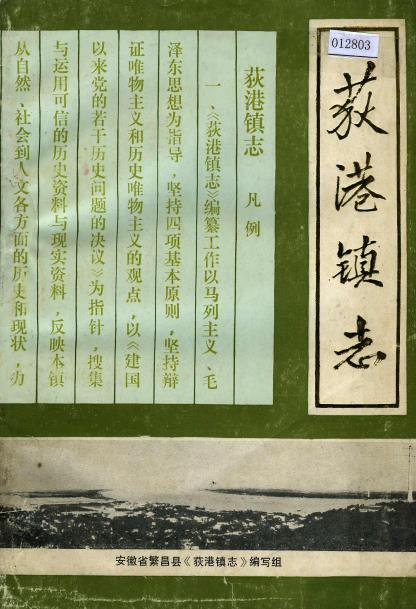 012803
荻港镇志
荻港镇志 凡例
一、《荻港镇志》编纂工作以马列主义、毛
泽东思想为指导，坚持四项基本原则，坚持辩
证唯物主义和历史唯物主义的观点，以《建国
以来党的若干历史问题的决议》为指针，搜集
与运用可信的历史资料与现实资料，反映本镇
从自然、社会到人文各方面的历史和现状，力
安徽省繁昌县《荻港镇志》编写组